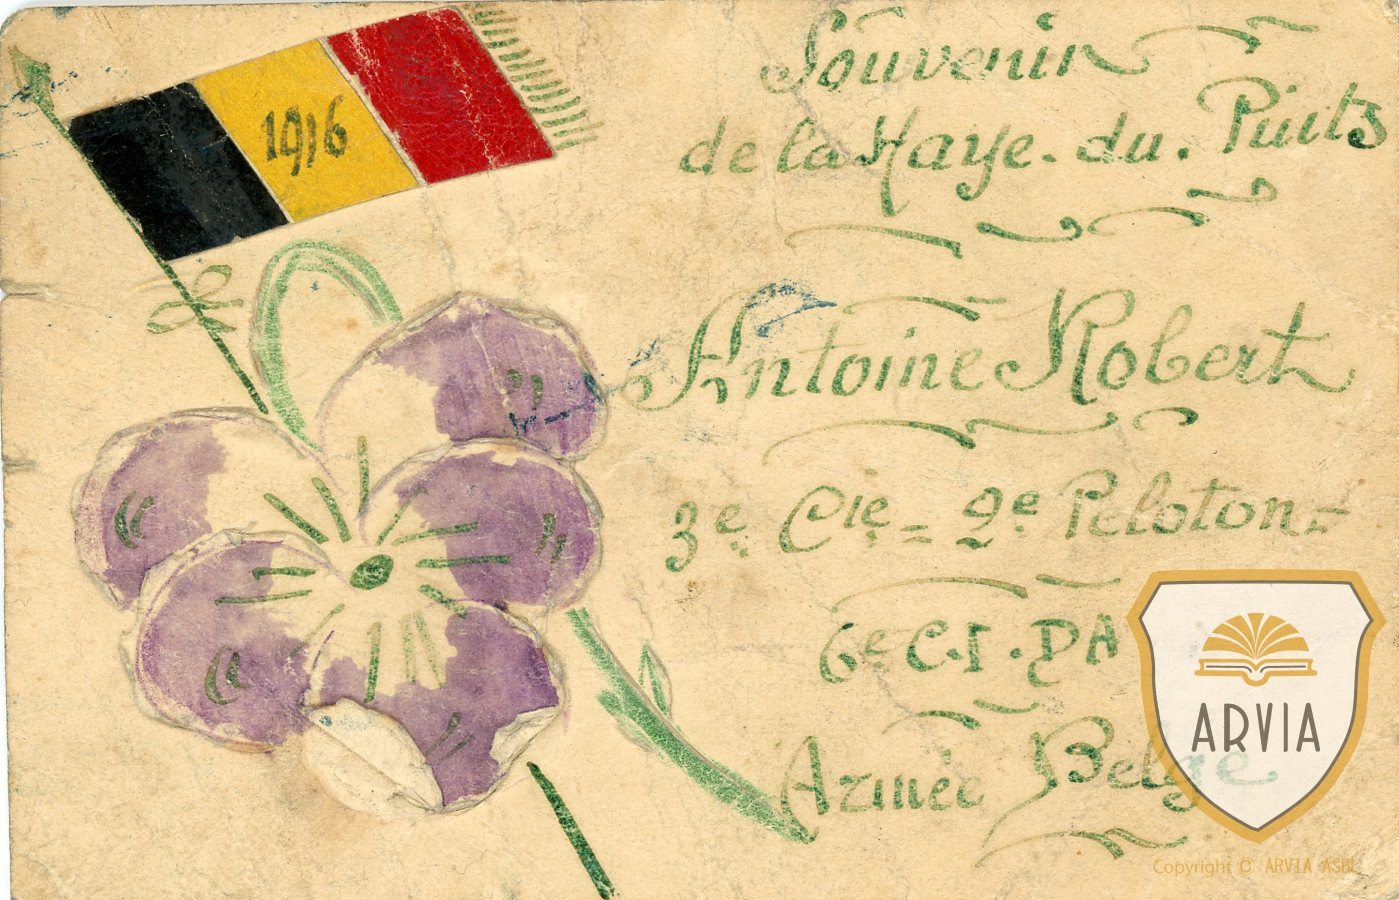 1916
Souvenir
de la Haye. du. Puits
Antoine Robert
3e Cie = 2e Peloton =
6e C.I. DA
Armée Belge
ARVIA
Copyright © ARVIA ASBL